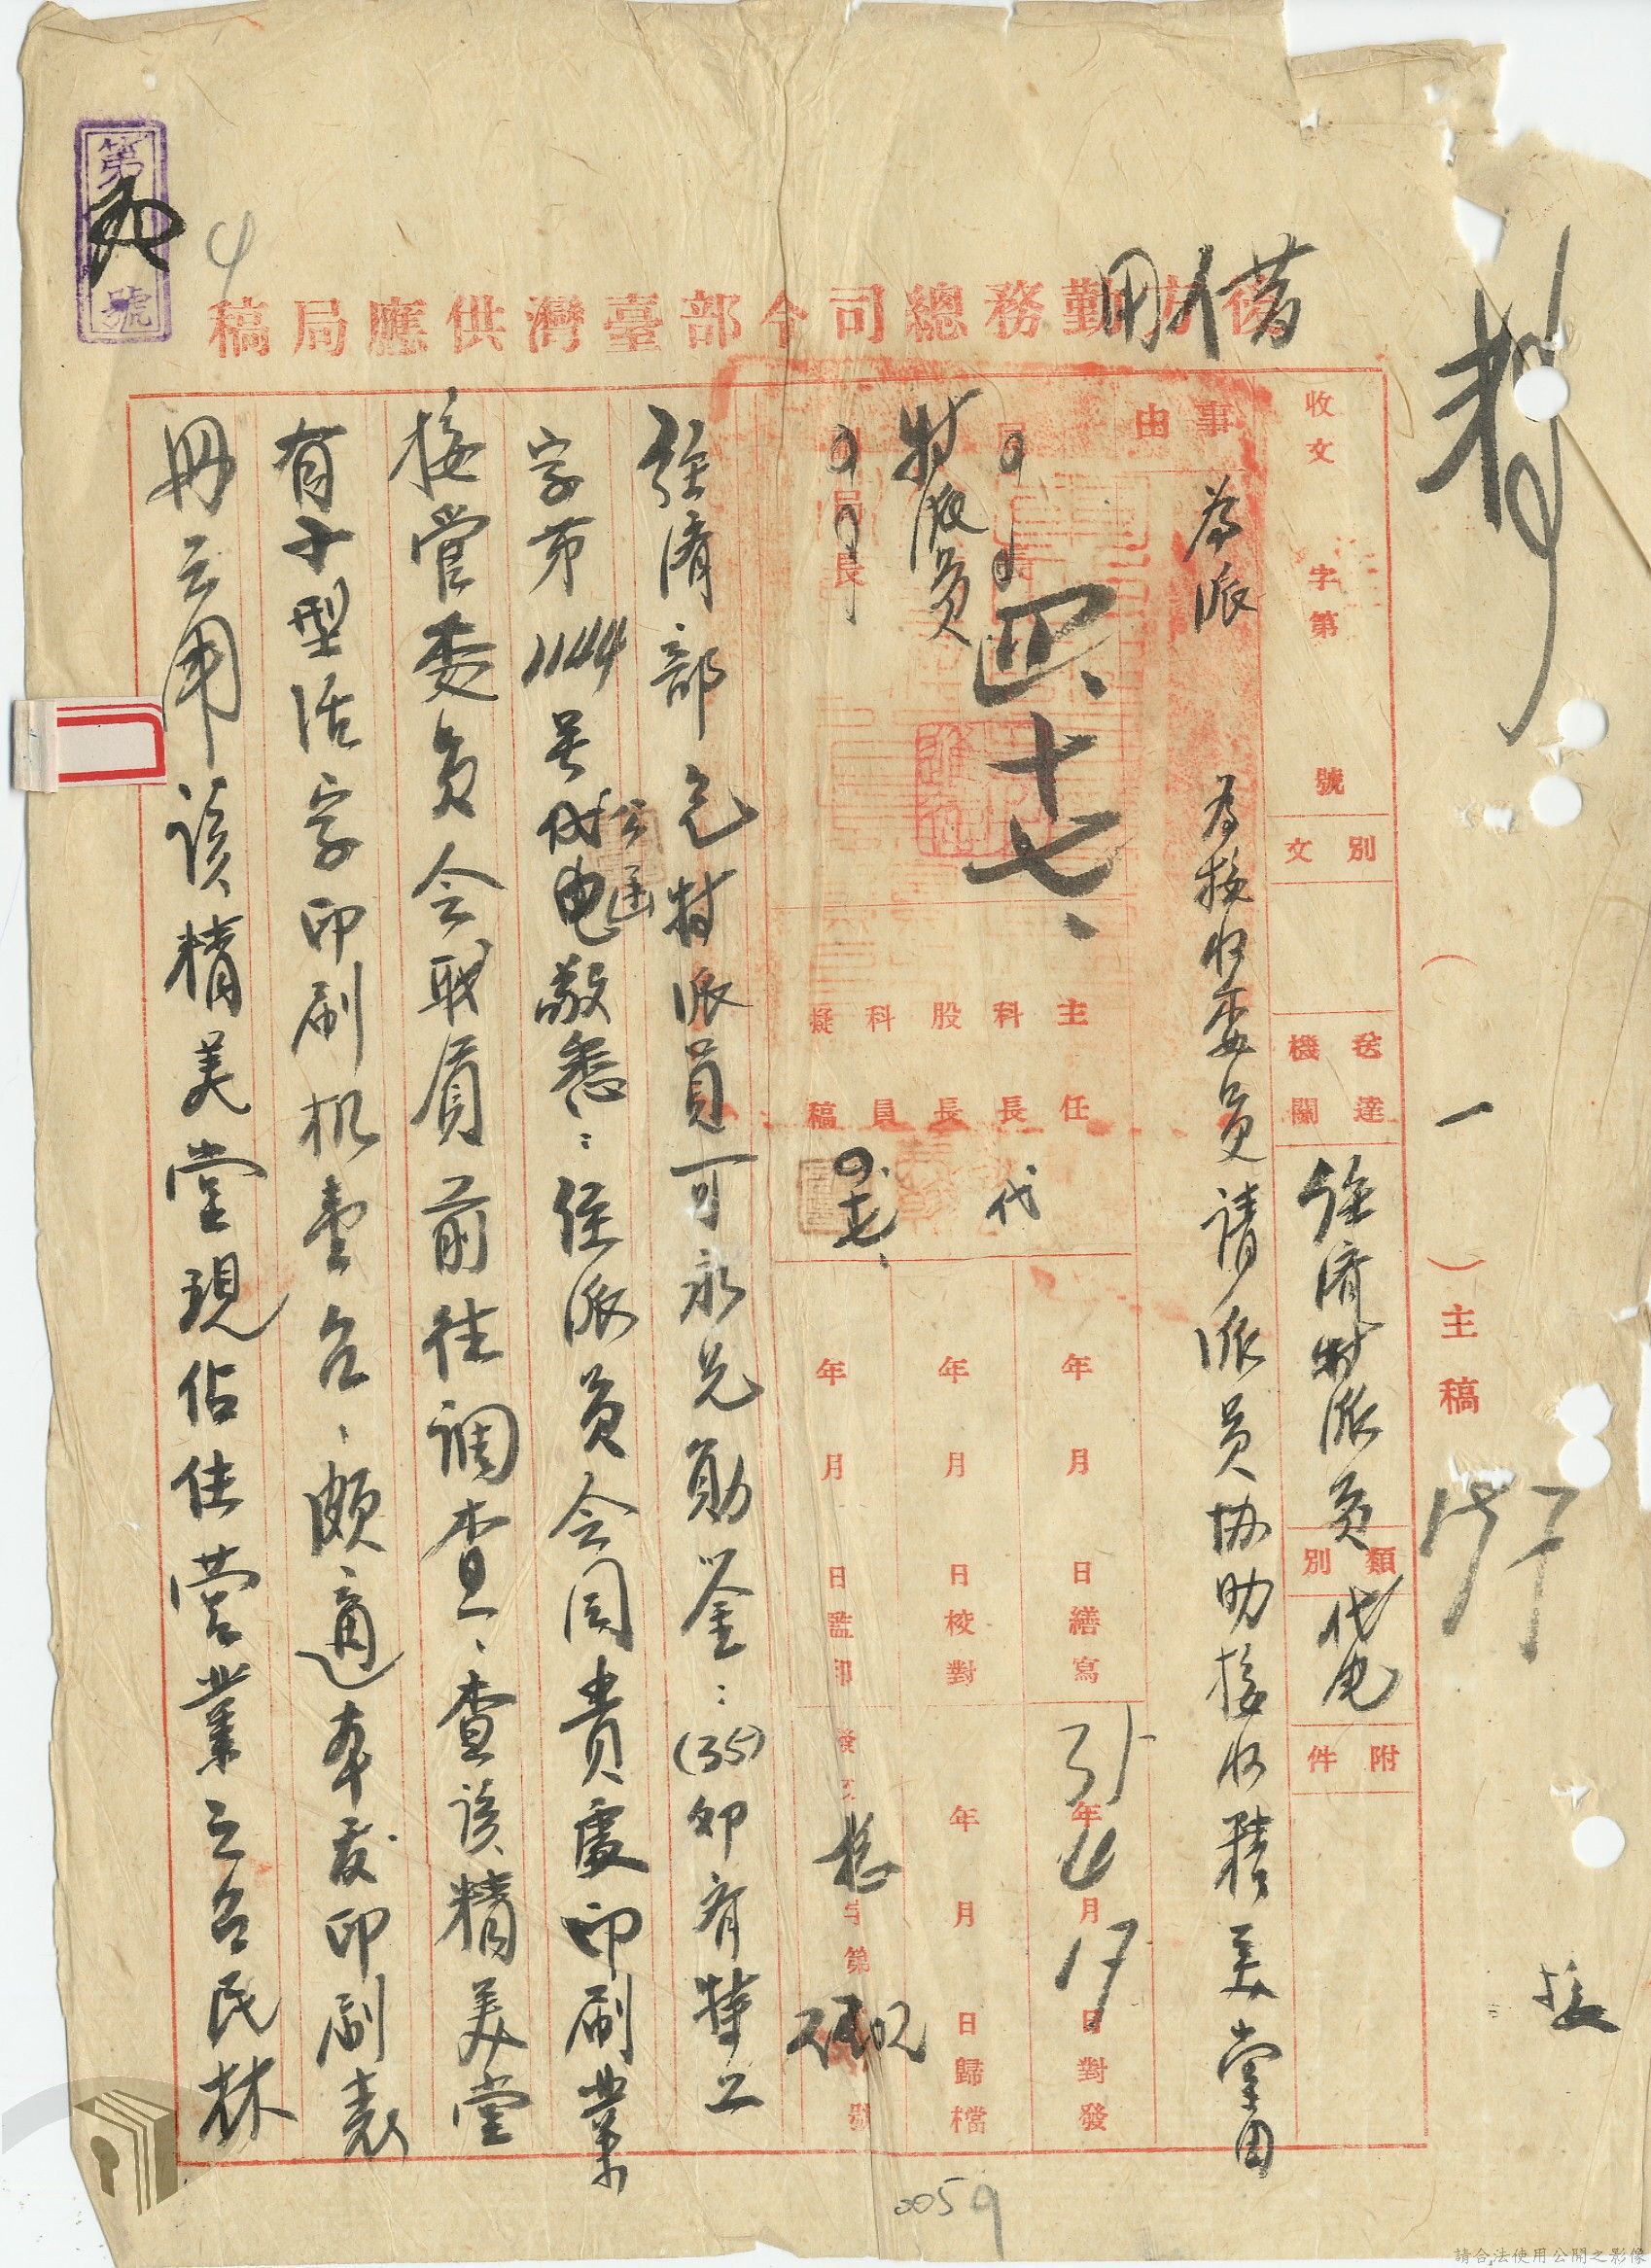 借用
後方勤務總司令部臺灣供應局稿
第
號
4
收文
字第
號
文別
送達機關
經濟特派員
類別
代电
附件
(一)主稿
事由
為派
為接收委員請派員協助接收精美堂由
局長
四、十七、
特派員
副局長
主任
科長
代
股長
科員
擬稿
年月日繕寫
年月日校對
年月日監印
35年4月17日對發
年月日歸檔
發文
字第
號
經濟部包特派員可永兄勛鉴:(35)卯有特工
字第1144号代电公函敬悉:經派員会同貴處印刷業
接管委員会职員前往調查、查該精美堂
有子型活字印刷机壹台、頗適本处印刷表
冊之用該精美堂現佔住营業之台民林
0059
接
請合法使用公開之影像